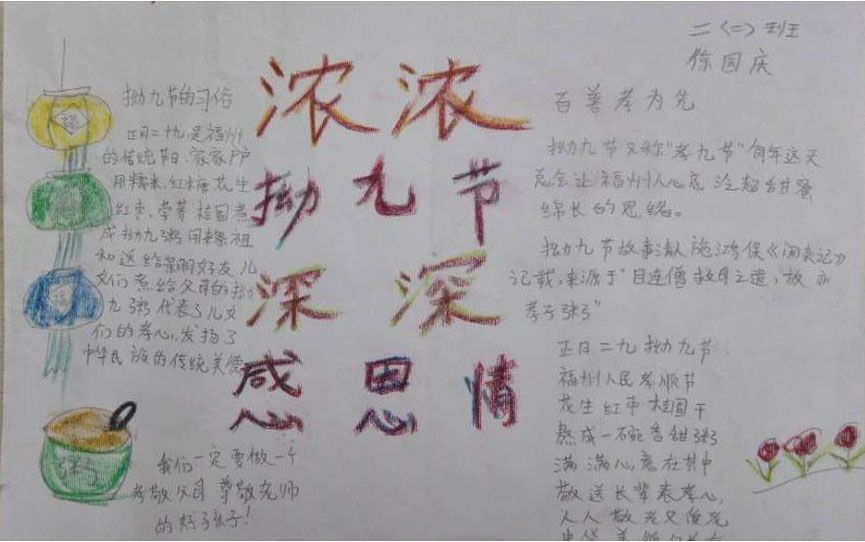 二〈二〉班
徐国庆
浓浓
拗九节
深深
感恩情
福
福
福
粥
拗九节的习俗
正月二十九是福州
的传统节日.家家户户
用糯米.红糖花生
红枣、荸荠桂园煮
成拗九粥用来祭祖
和送给亲朋好友儿
女们煮给父母的拗
九粥代表了儿女
们的孝心,发扬了
中华民族的传统美德
我们一定要做一个
孝敬父母尊敬老师
的好孩子!
百善孝为先
拗九节又称“孝九节”每年这天
总会让福州人心底泛起甜蜜
绵长的思绪。
拗九节故事清人
记载,来源于“目连僧救母之遗,故亦
孝子粥”
正月二九拗九节;
福州人民孝顺节
花生红枣桂园干
熬成一碗香甜粥
满满心意在其中
敬送长辈表孝心,
人人敬老又爱老